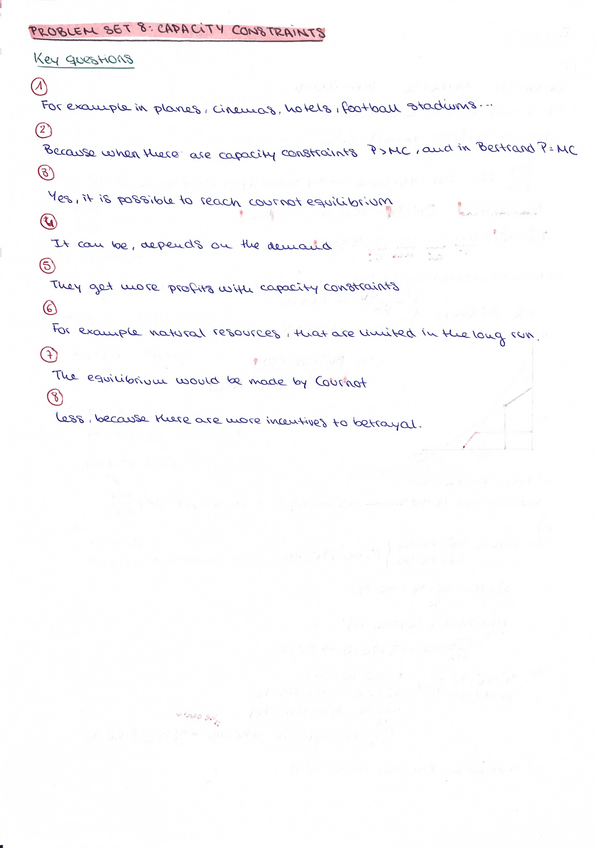 PROBLEM SET 8: CAPACITY CONSTRAINTS
Key questions
1
For example in planes, cinemas, hotels, football stadiums...
2
Because when there are capacity constraints P>MC, and in Bertrand P=MC
3
Yes, it is possible to reach cournot equilibrium
4
It can be, depends on the demand
5
They get more profits with capacity constraints
6
For example natural resources, that are limited in the long run.
7
The equilibrium would be made by Cournot
8
Less, because there are more incentives to betrayal.